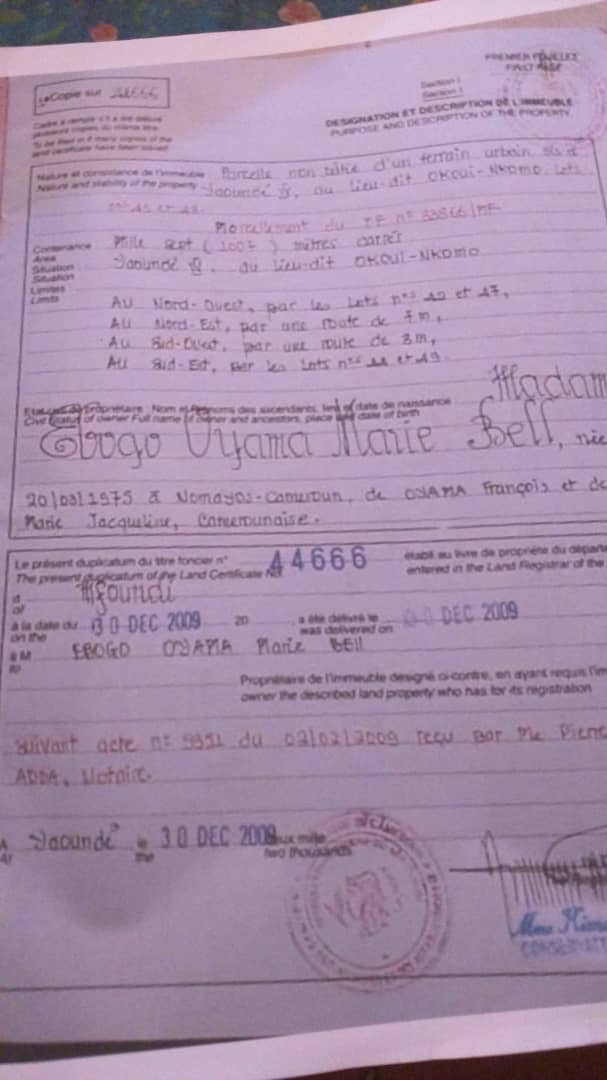 PREMIER FEUILLET
FIRST PAGE
Copie sur 44666
Section I
Section I
DESIGNATION ET DESCRIPTION DE L'IMMEUBLE
PURPOSE AND DESCRIPTION OF THE PROPERTY
Cadre à remplir s'il a été délivré
plusieurs copies du même titre
To be filled in if many copies of the
land certificate have been issued
Nature et consistance de l'immeuble Parcelle non bâtie d'un terrain urbain sis à
Nature and stability of the property Yaoundé, au lieu-dit OKOUI-NKOMO. Lots
Morcellement du TF n° 33866/MF
Contenance Mille sept (1007) mètres carrés
Area
Situation Yaoundé, au lieu-dit OKOUI-NKOMO
Situation
Limites
Limits
Au Nord-Ouest, par les Lots nos 12 et 17,
Au Nord-Est, par une route de 7m,
Au Sud-Ouest, par une route de 8m,
Au Sud-Est, par les Lots nos et 19.
Madam
Etat civil du propriétaire : Nom et Prénoms des ascendants, lieu et date de naissance
Civil Status of owner Full name of owner and ancestors, place and date of birth
Ebogo Oyama Marie Bell, née
20/03/1975 à Nomayos-Cameroun, de OYAMA François et de
Marie Jacqueline, Camerounaise.
Le présent duplicatum du titre foncier n° 44666 établi au livre de propriété du départe
The present duplicatum of the Land Certificate No entered in the Land Registrar of the
d Mfoundi
of
à la date du 30 DEC 2009 20 a été délivré le 30 DEC 2009
on the was delivered on
à M EBOGO OYAMA Marie Bell
to
Propriétaire de l'immeuble désigné ci-contre, en ayant requis l'im
owner the described land property who has for its registration
Suivant acte n° 5351 du 02/02/2009 reçu par Me Pierre
ADDA, Notaire.
A Yaoundé le 30 DEC 2009 deux mille
At the two thousands
Mme
CONSERVAT